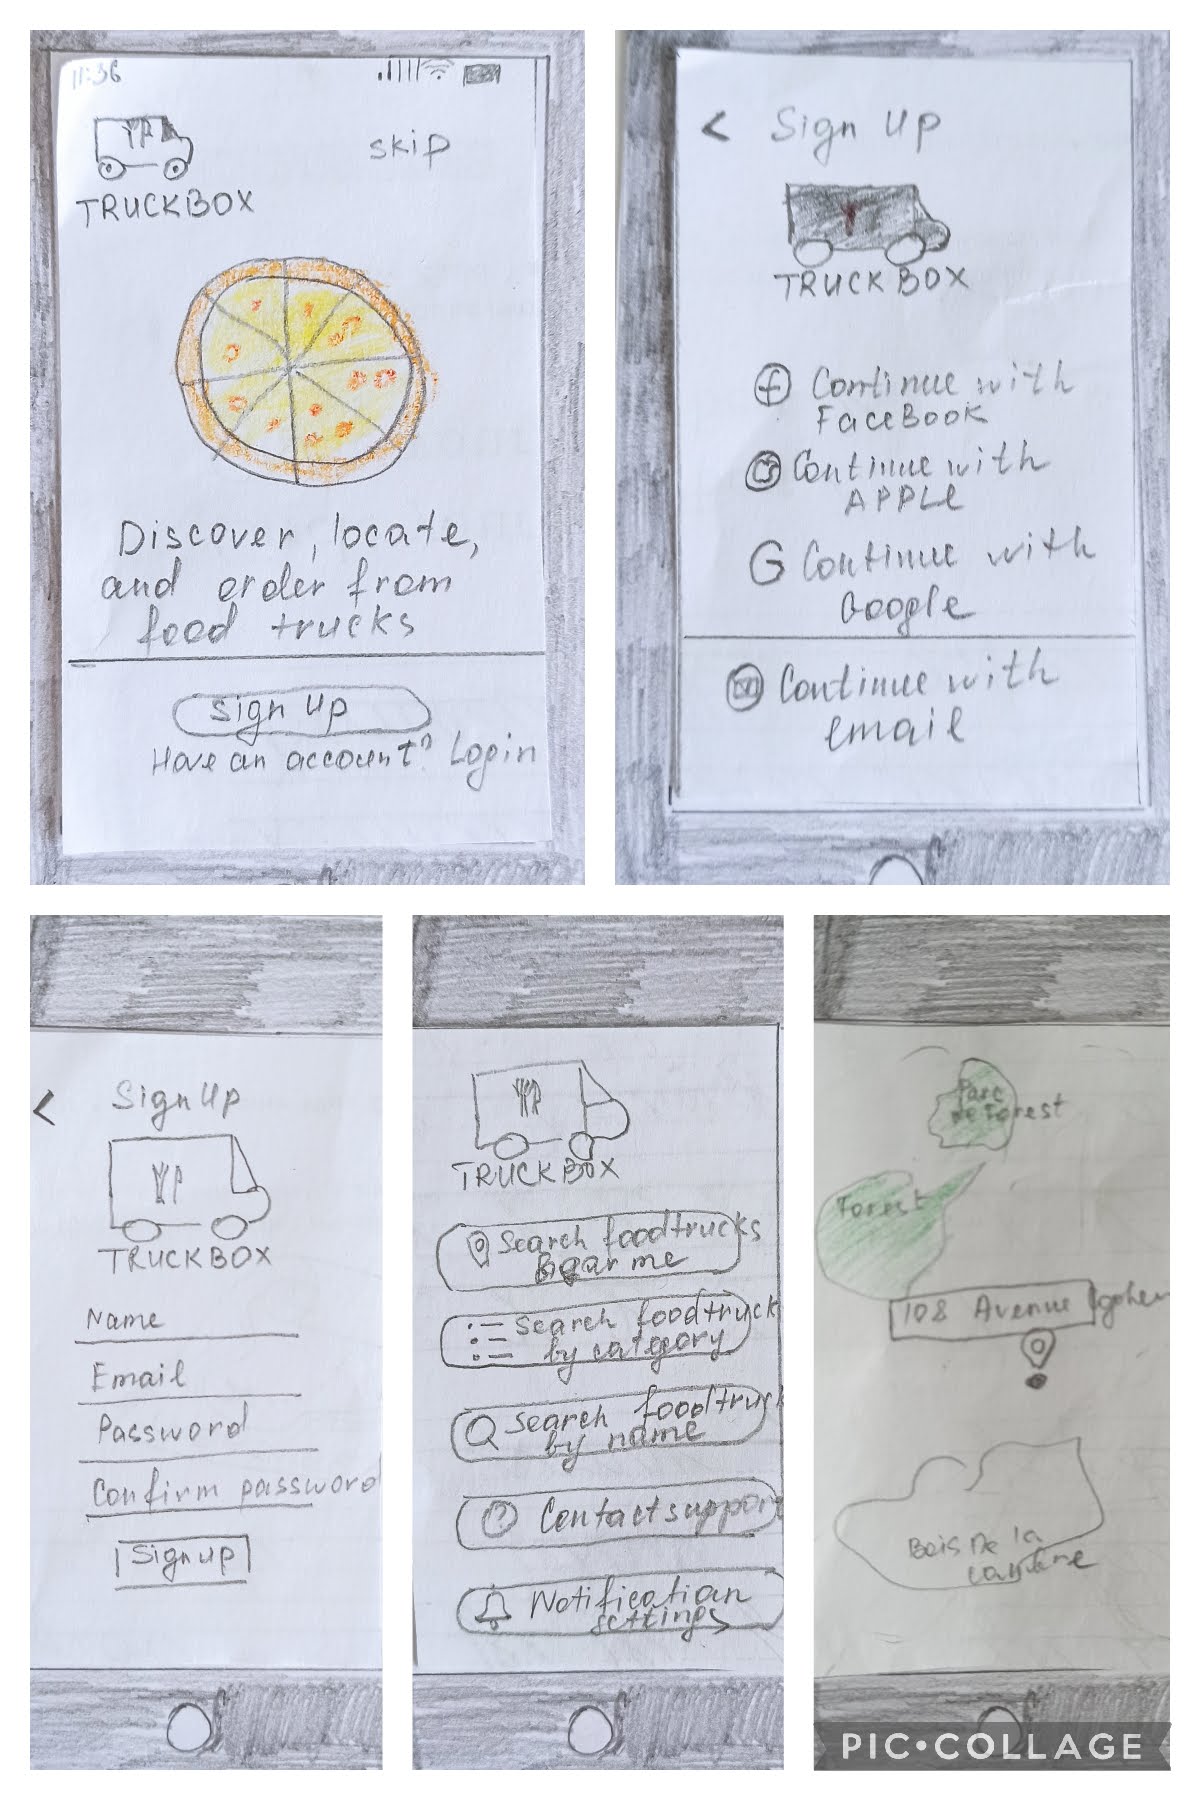 11:36
skip
TRUCKBOX
Discover, locate,
and order from
food trucks
Sign Up
Have an account? Login
< Sign Up
TRUCKBOX
f Continue with
FaceBook
Continue with
APPLE
G Continue with
Google
Continue with
email
< Sign Up
TRUCKBOX
Name
Email
Password
Confirm password
Sign up
TRUCKBOX
Search foodtrucks
near me
Search foodtruck
by category
Search foodtruck
by name
? Contact support
Notification
settings
Parc
de Forest
Forest
108 Avenue
Bois De la
PIC•COLLAGE